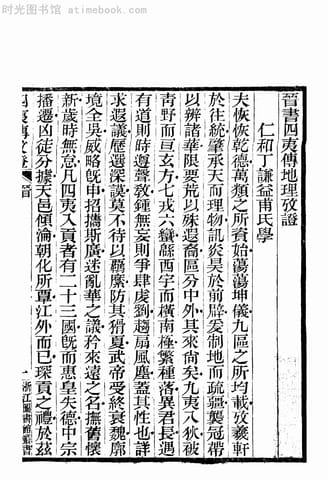 时光图书馆 - atimebook.com
晉書四夷傳地理攷證
仁和丁謙益甫氏學
夫恢恢乾德萬類之所資始蕩蕩坤儀九區之所均載攷羲軒
於往統肇承天而理物訊炎昊於前辟爰制地而疏疆襲冠帶
以辨諸華限要荒以殊遐裔區分中外其來尙矣九夷八狄被
青野而亘玄方七戎六蠻緜西宇而橫南極繁種落異君長遇
有道則時遵聲敎鍾無妄則爭肆虔劉趨扇風塵蓋其性也詳
求遐議歷選深謨莫不待以羈縻防其猾夏武帝受終衰魏廓
境全吳威略旣申招攜斯廣迷亂華之議矜來遠之名撫舊懷
新歲時無怠凡四夷入貢者有二十三國旣而惠皇失德中宗
播遷凶徒分據天邑傾淪朝化所覃江外而已琛貢之禮於茲
一 浙江圖書館叢書